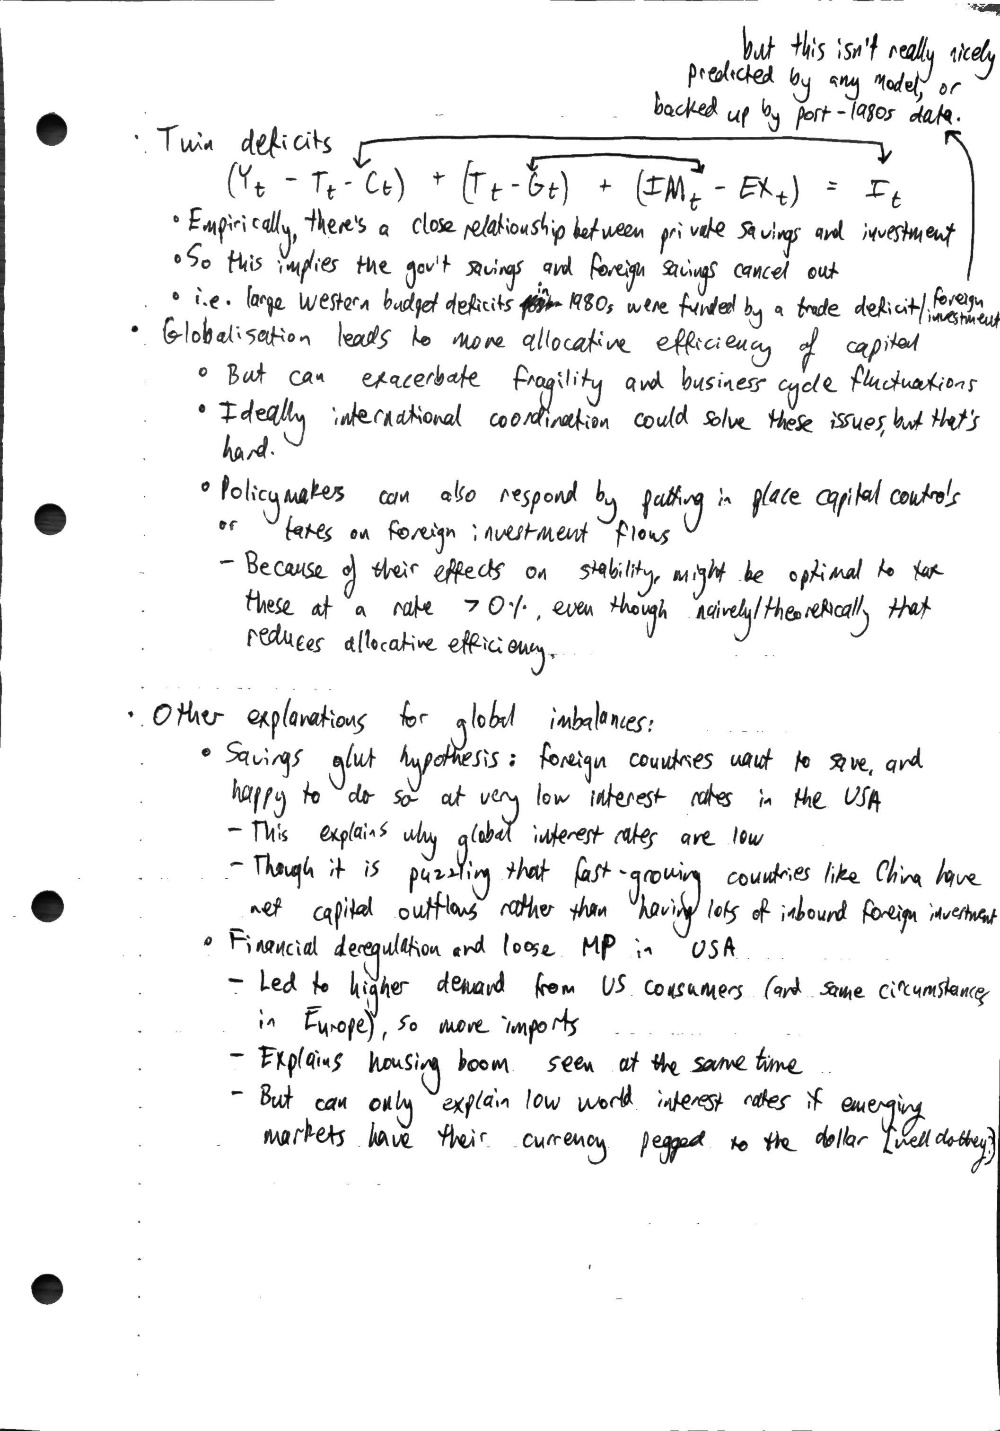 but this isn't really nicely
predicted by any model, or
backed up by post-1980s data.
· Twin deficits
(Y_t - T_t - C_t) + (T_t - G_t) + (IM_t - EX_t) = I_t
• Empirically, there's a close relationship between private savings and investment
• So this implies the gov't savings and foreign savings cancel out
• i.e. large Western budget deficits in 1980s were funded by a trade deficit/foreign investment
· Globalisation leads to more allocative efficiency of capital
• But can exacerbate fragility and business cycle fluctuations
• Ideally international coordination could solve these issues, but that's
hard.
• Policymakers can also respond by putting in place capital controls
or taxes on foreign investment flows
- Because of their effects on stability, might be optimal to tax
these at a rate >0%, even though naively/theoretically that
reduces allocative efficiency.
· Other explanations for global imbalances:
• Savings glut hypothesis: foreign countries want to save, and
happy to do so at very low interest rates in the USA
- This explains why global interest rates are low
- Though it is puzzling that fast-growing countries like China have
net capital outflows rather than having lots of inbound foreign investment
• Financial deregulation and loose MP in USA
- Led to higher demand from US consumers (and same circumstances
in Europe), so more imports
- Explains housing boom seen at the same time
- But can only explain low world interest rates if emerging
markets have their currency pegged to the dollar [well do they?]